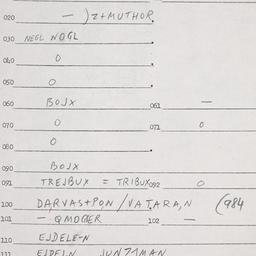 020 — )Z+MUTHOR.
030 NEGL NOGL
040 0
050 0
060 BOJX 061 —
070 0 071 0
080 0
090 BOJX
091 TREJBUX = TRIBUX 092 0
100 DARVAS+PON/VATARA,N (984
101 — QMOGER 102 —
110 EJDELE-N
111 EJDELN JUNZMAN